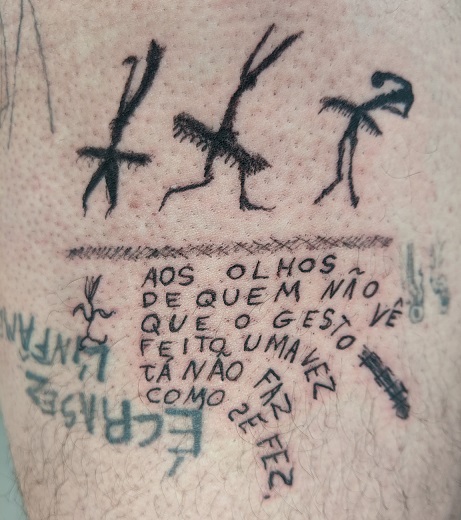 AOS OLHOS
DE QUEM NÃO VÊ
QUE O GESTO
FEITO UMA VEZ
JÁ NÃO FAZ
COMO SE FEZ.
ÉCRASEZ
L'INFÂM